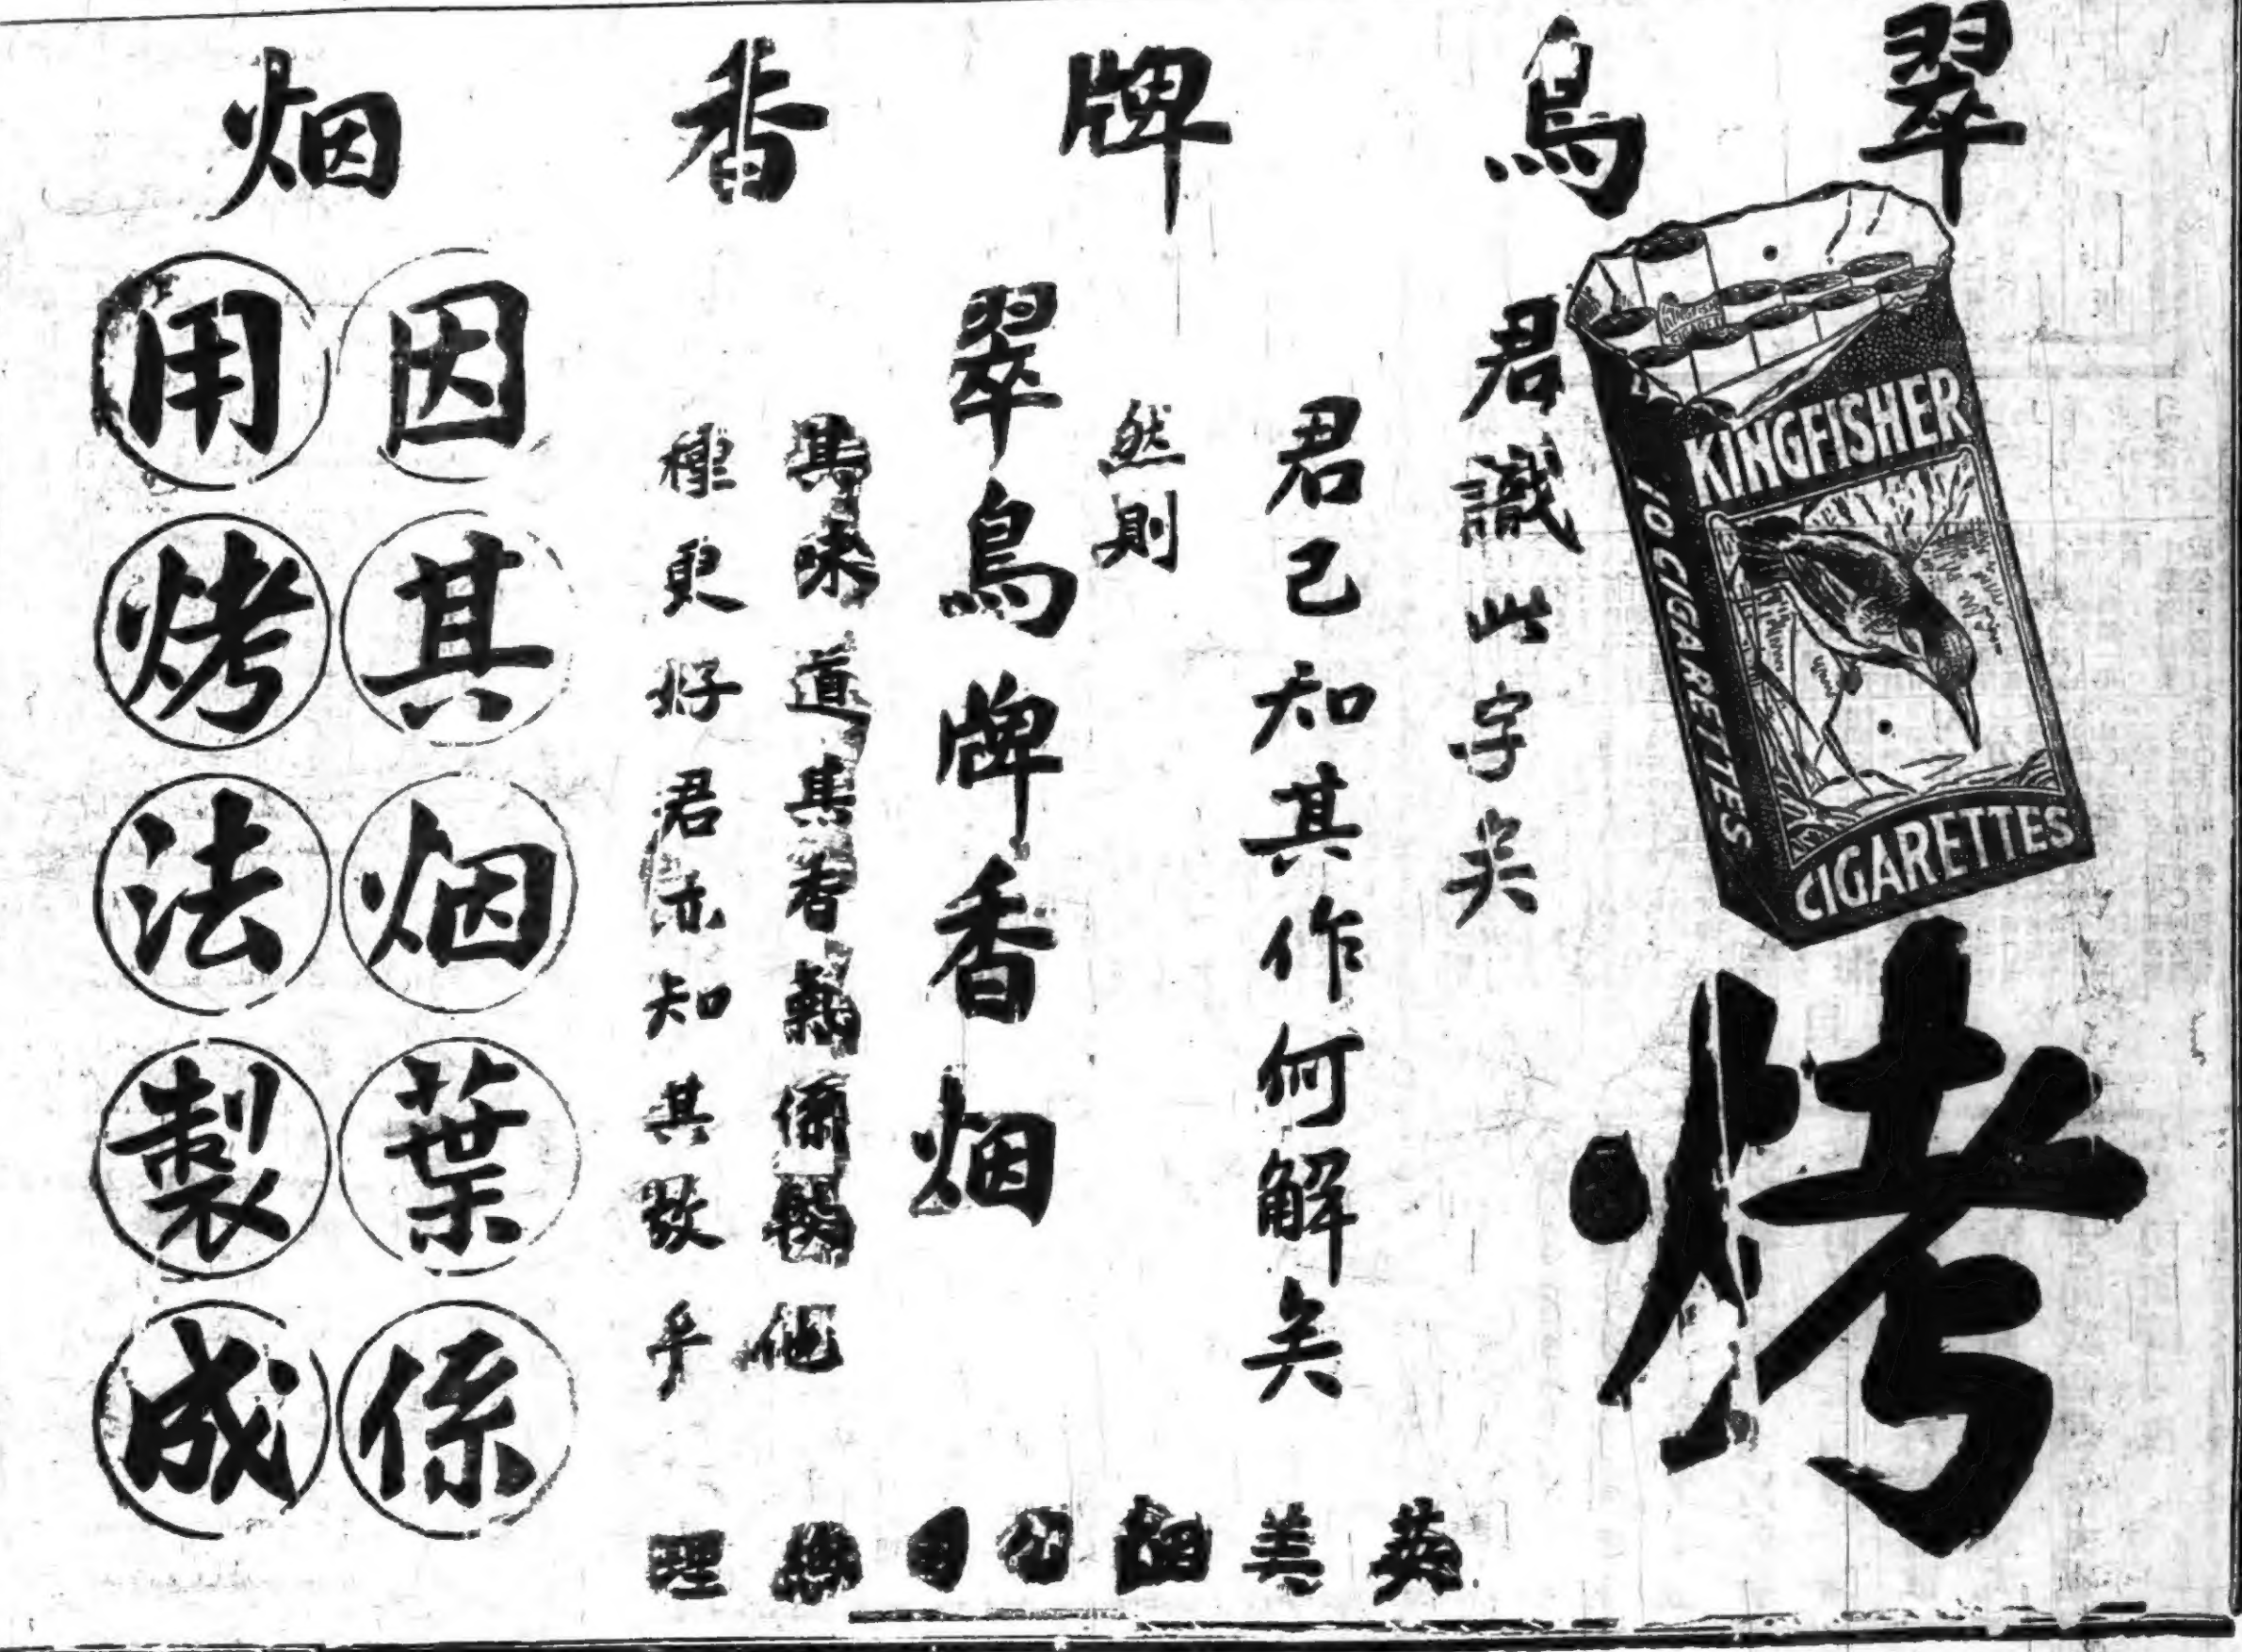 翠鳥牌香烟
KINGFISHER
CIGARETTES
10 CIGARETTES
烤
君識此字矣
君已知其作何解矣
然則
翠鳥牌香烟
其味道其香氣係較他
種更好君亦知其故乎
因其烟葉係
用烤法製成
英美烟公司總理